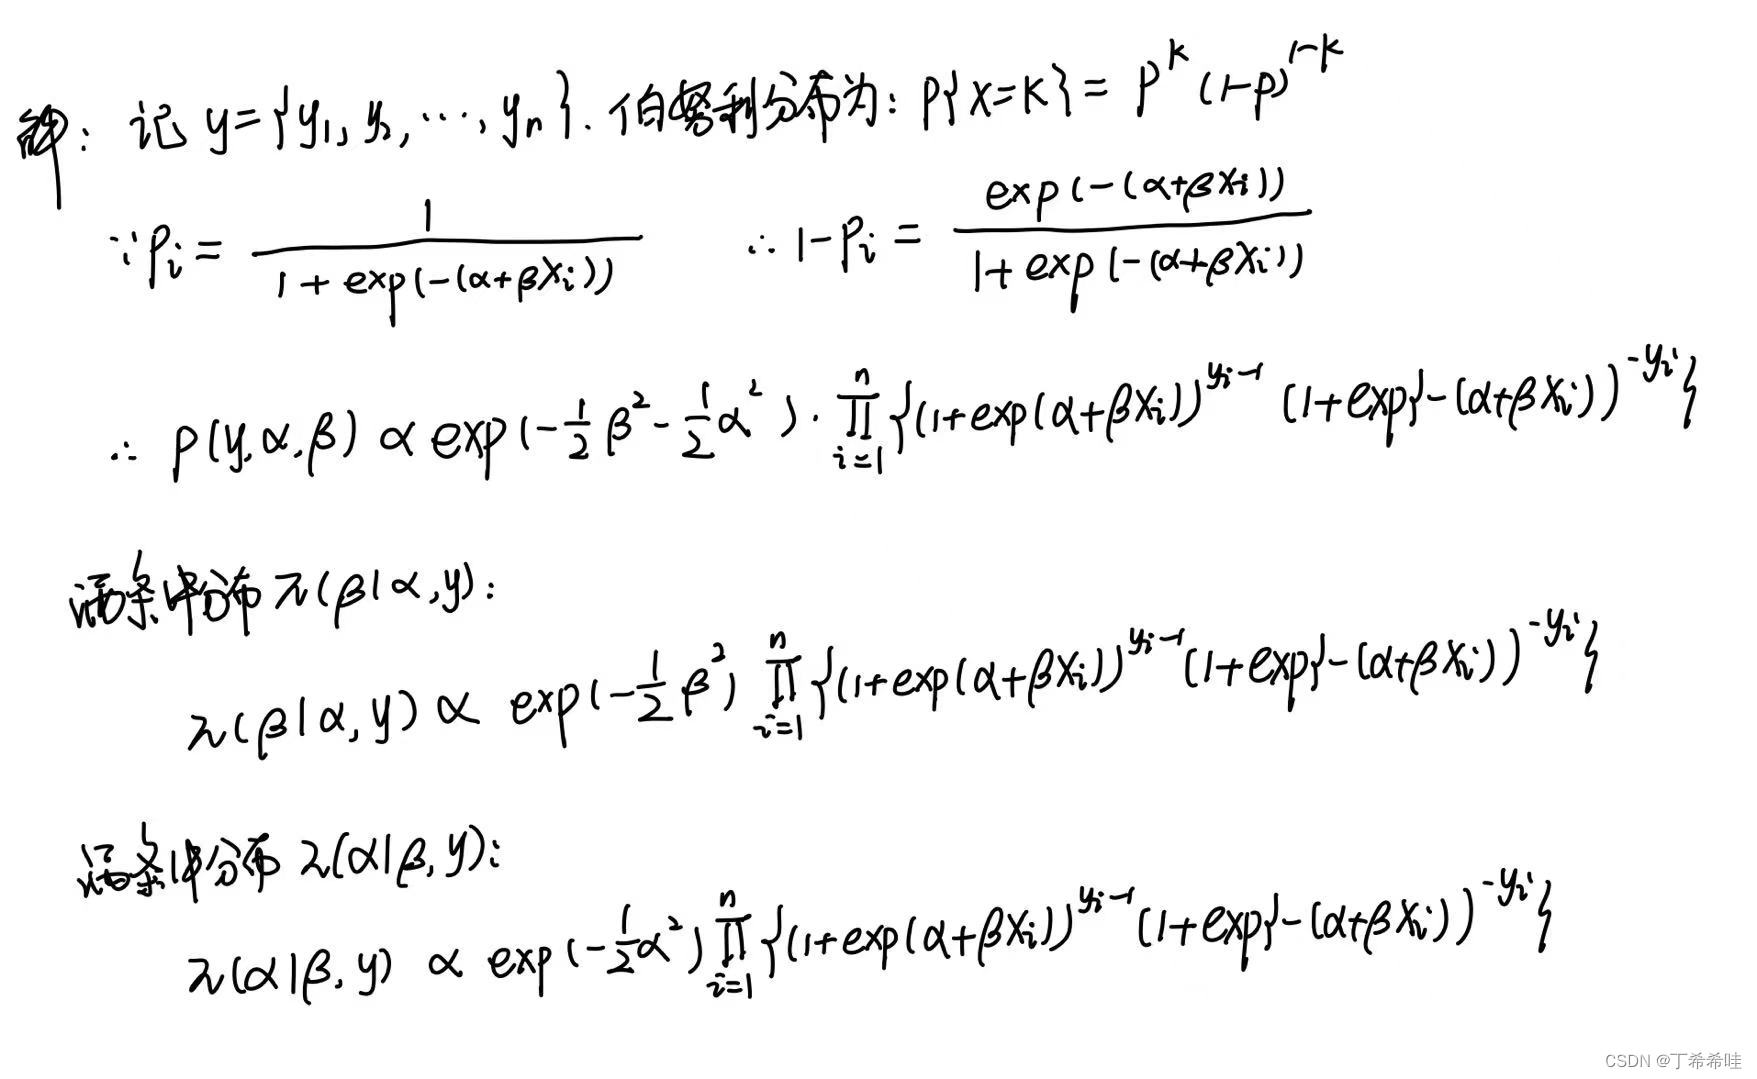 解: 记 y={y₁, y₂, ⋯, yₙ}. 伯努利分布为: P{X=K} = p^k (1-p)^{1-k}
∵ P_i = \frac{1}{1+exp(-(α+βX_i))} ∴ 1-P_i = \frac{exp(-(α+βX_i))}{1+exp(-(α+βX_i))}
∴ p(y,α,β) ∝ exp(-\frac{1}{2}β^2-\frac{1}{2}α^2)·∏_{i=1}^{n}{(1+exp(α+βX_i))^{y_i-1} (1+exp{-(α+βX_i))^{-y_i}}
满条件分布 π(β|α,y):
π(β|α,y) ∝ exp(-\frac{1}{2}β^2) ∏_{i=1}^{n}{(1+exp(α+βX_i))^{y_i-1} (1+exp{-(α+βX_i))^{-y_i}}
满条件分布 π(α|β,y):
π(α|β,y) ∝ exp(-\frac{1}{2}α^2) ∏_{i=1}^{n}{(1+exp(α+βX_i))^{y_i-1} (1+exp{-(α+βX_i))^{-y_i}}
CSDN @丁希希哇